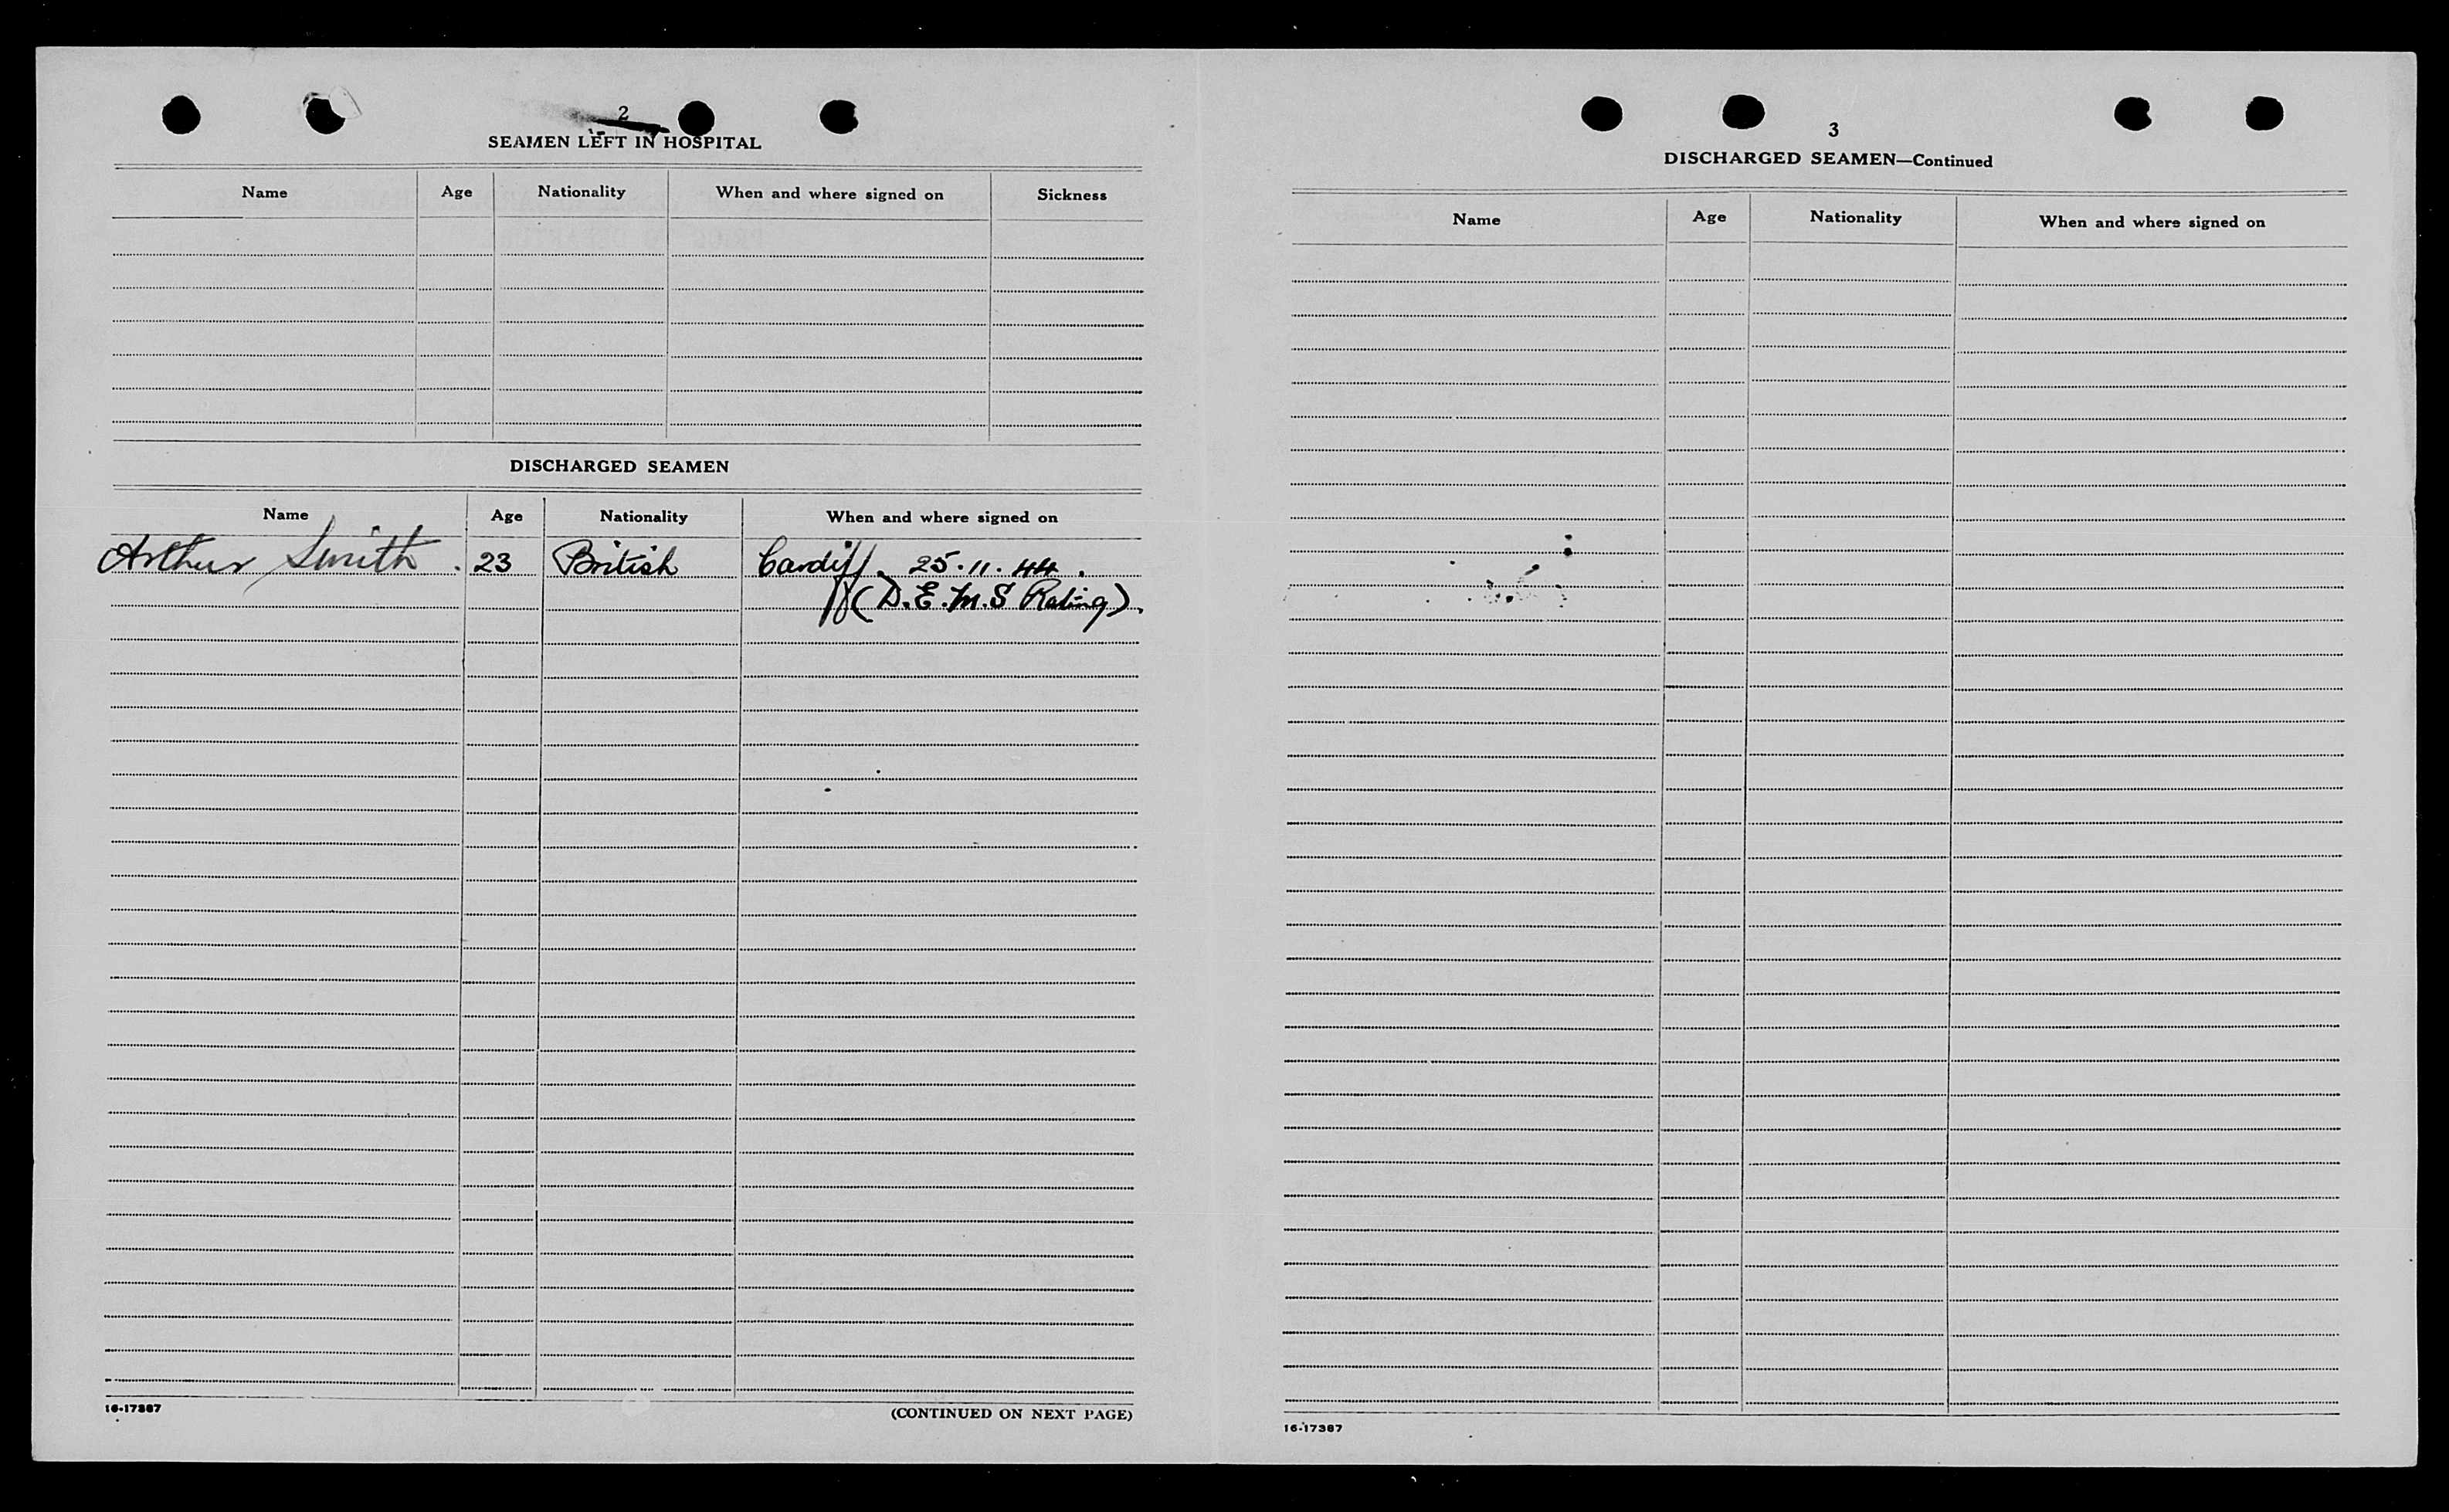 2
SEAMEN LEFT IN HOSPITAL
Name Age Nationality When and where signed on Sickness
DISCHARGED SEAMEN
Name Age Nationality When and where signed on
Arthur Smith. 23 British Cardiff. 25.11.44.
(D.E.M.S Rating).
16-17387
(CONTINUED ON NEXT PAGE)
3
DISCHARGED SEAMEN—Continued
Name Age Nationality When and where signed on
16-17387